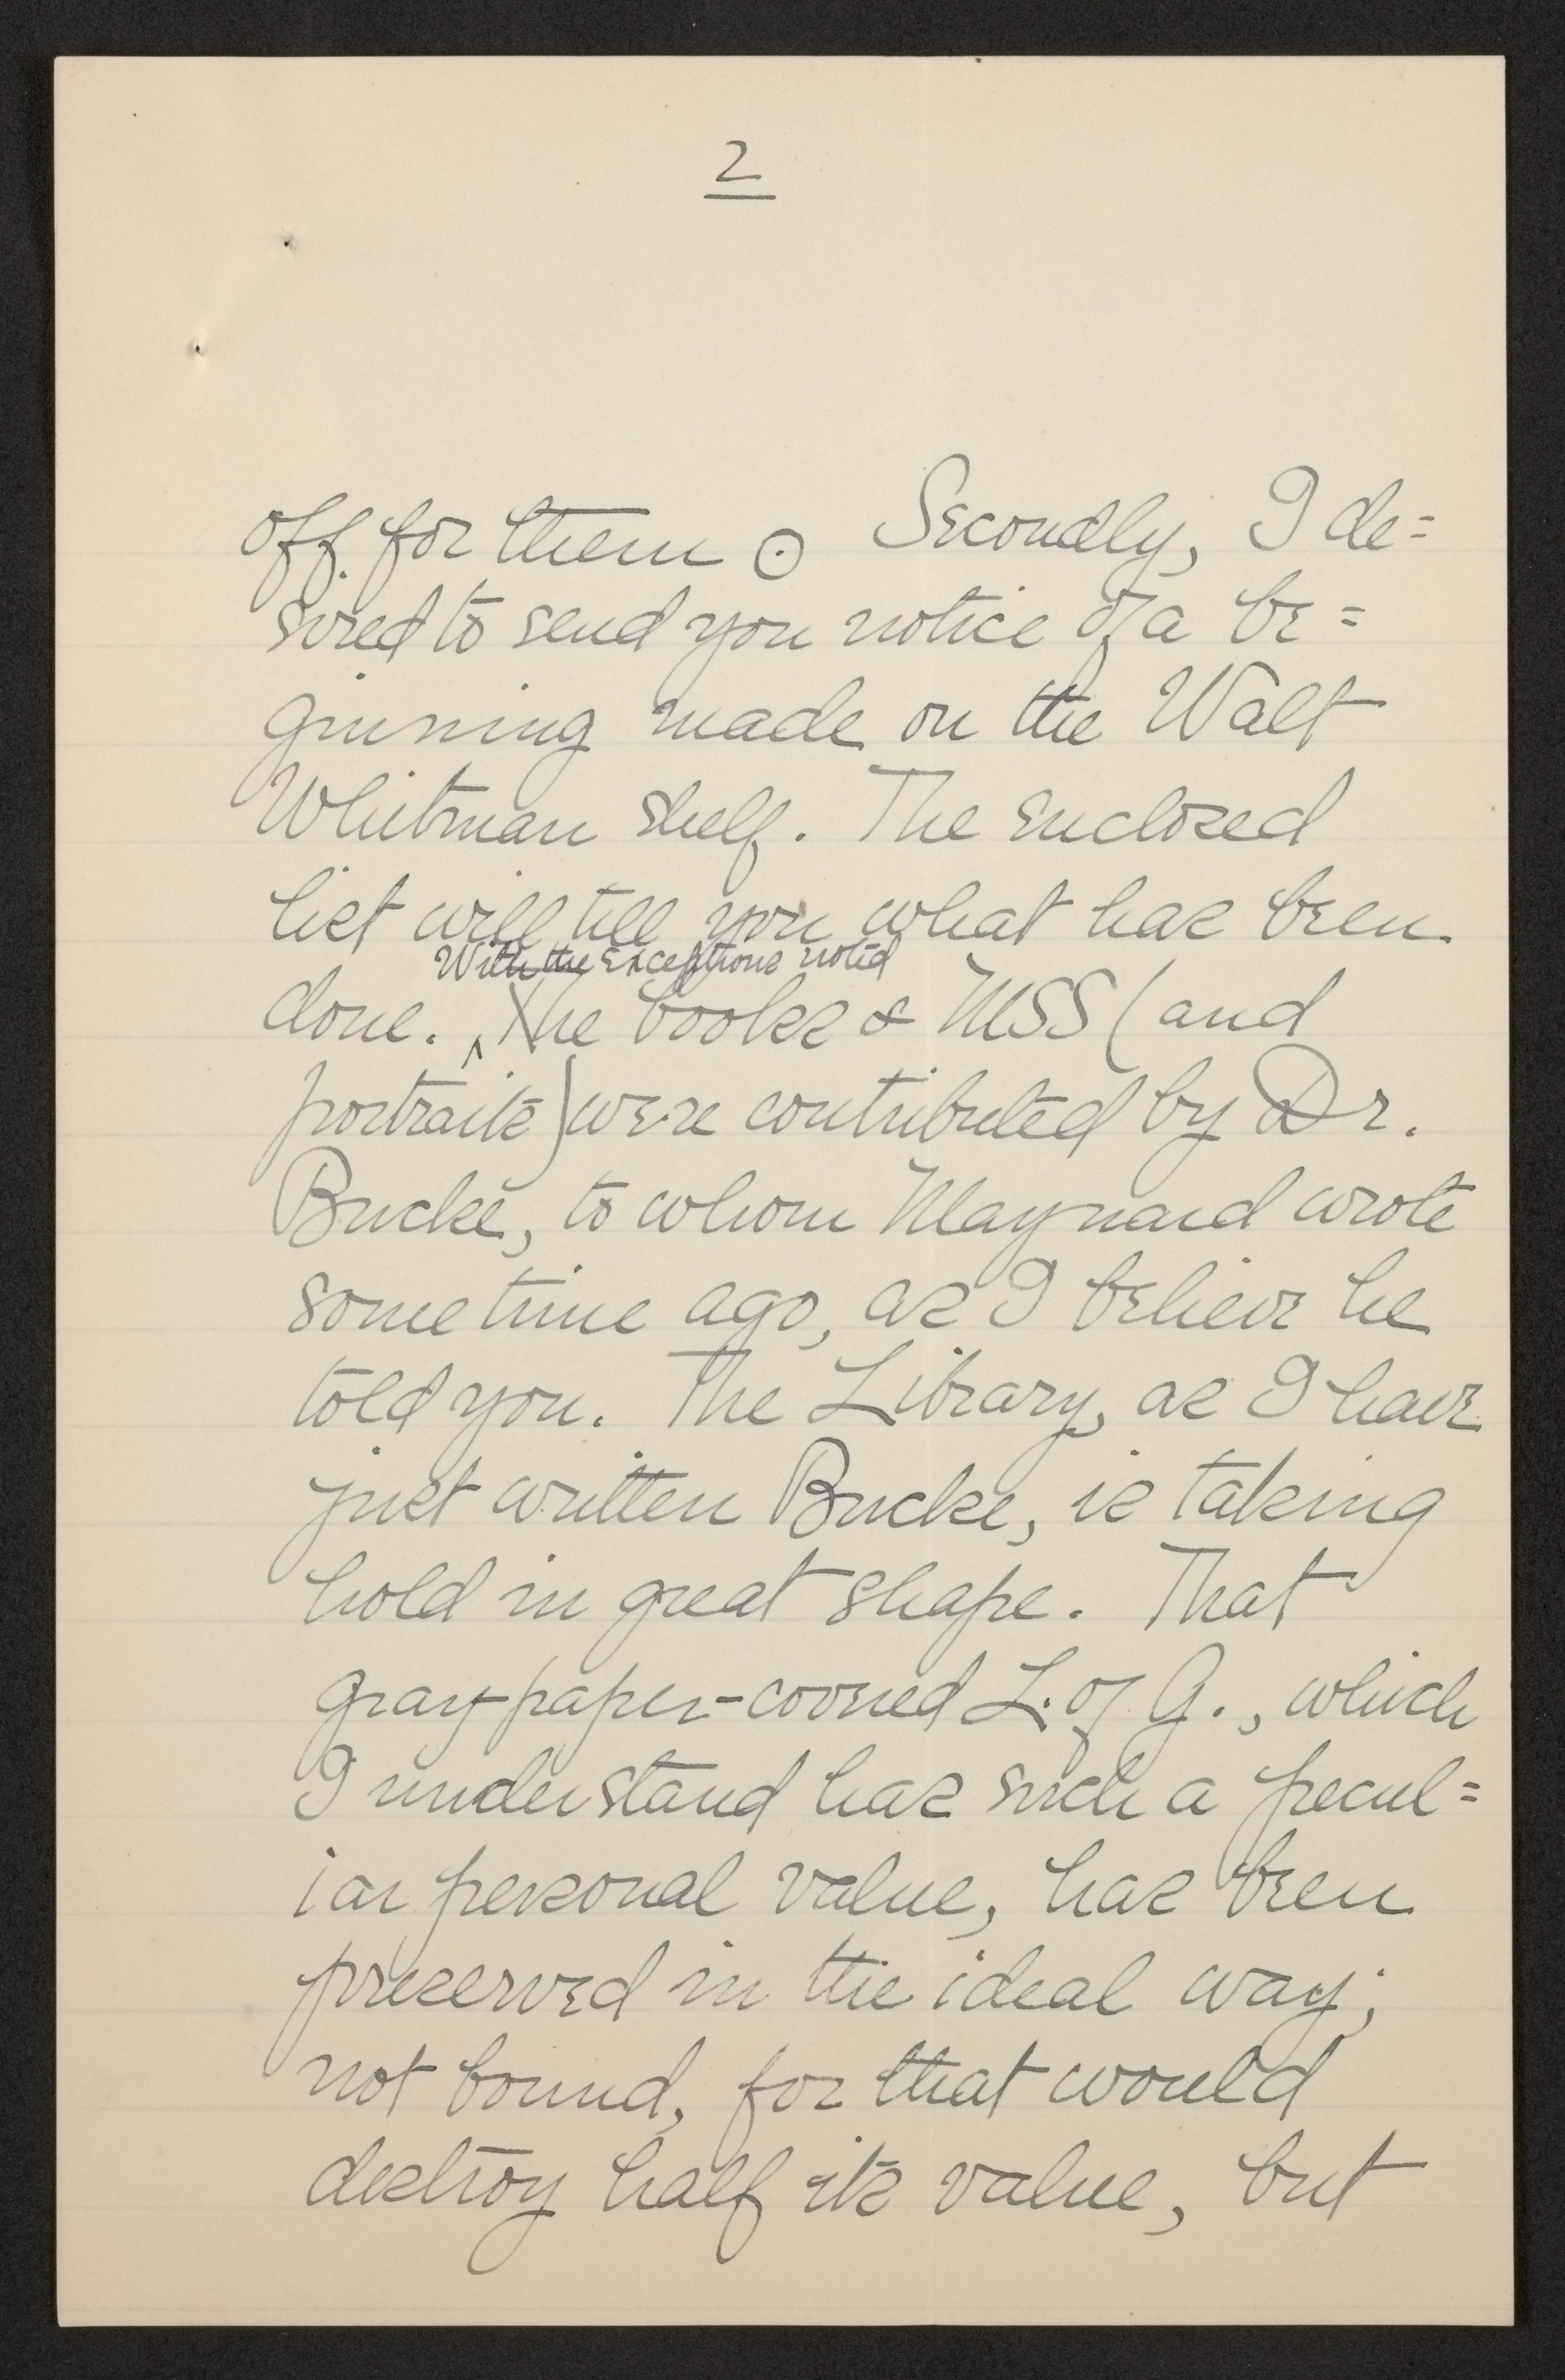 2
off for them ⊙ Secondly, I de=
sired to send you notice of a be=
ginning made on the Walt
Whitman shelf. The enclosed
list will tell you what has been
With the exceptions noted
done. ‸ The books & MSS (and
portraits) were contributed by Dr.
Bucke, to whom Maynard wrote
some time ago, as I believe he
told you. The Library, as I have
just written Bucke, is taking
hold in great shape. That
gray paper-covered L. of G., which
I understand has such a pecul=
iar personal value, has been
preserved in the ideal way;
not bound, for that would
destroy half its value, but